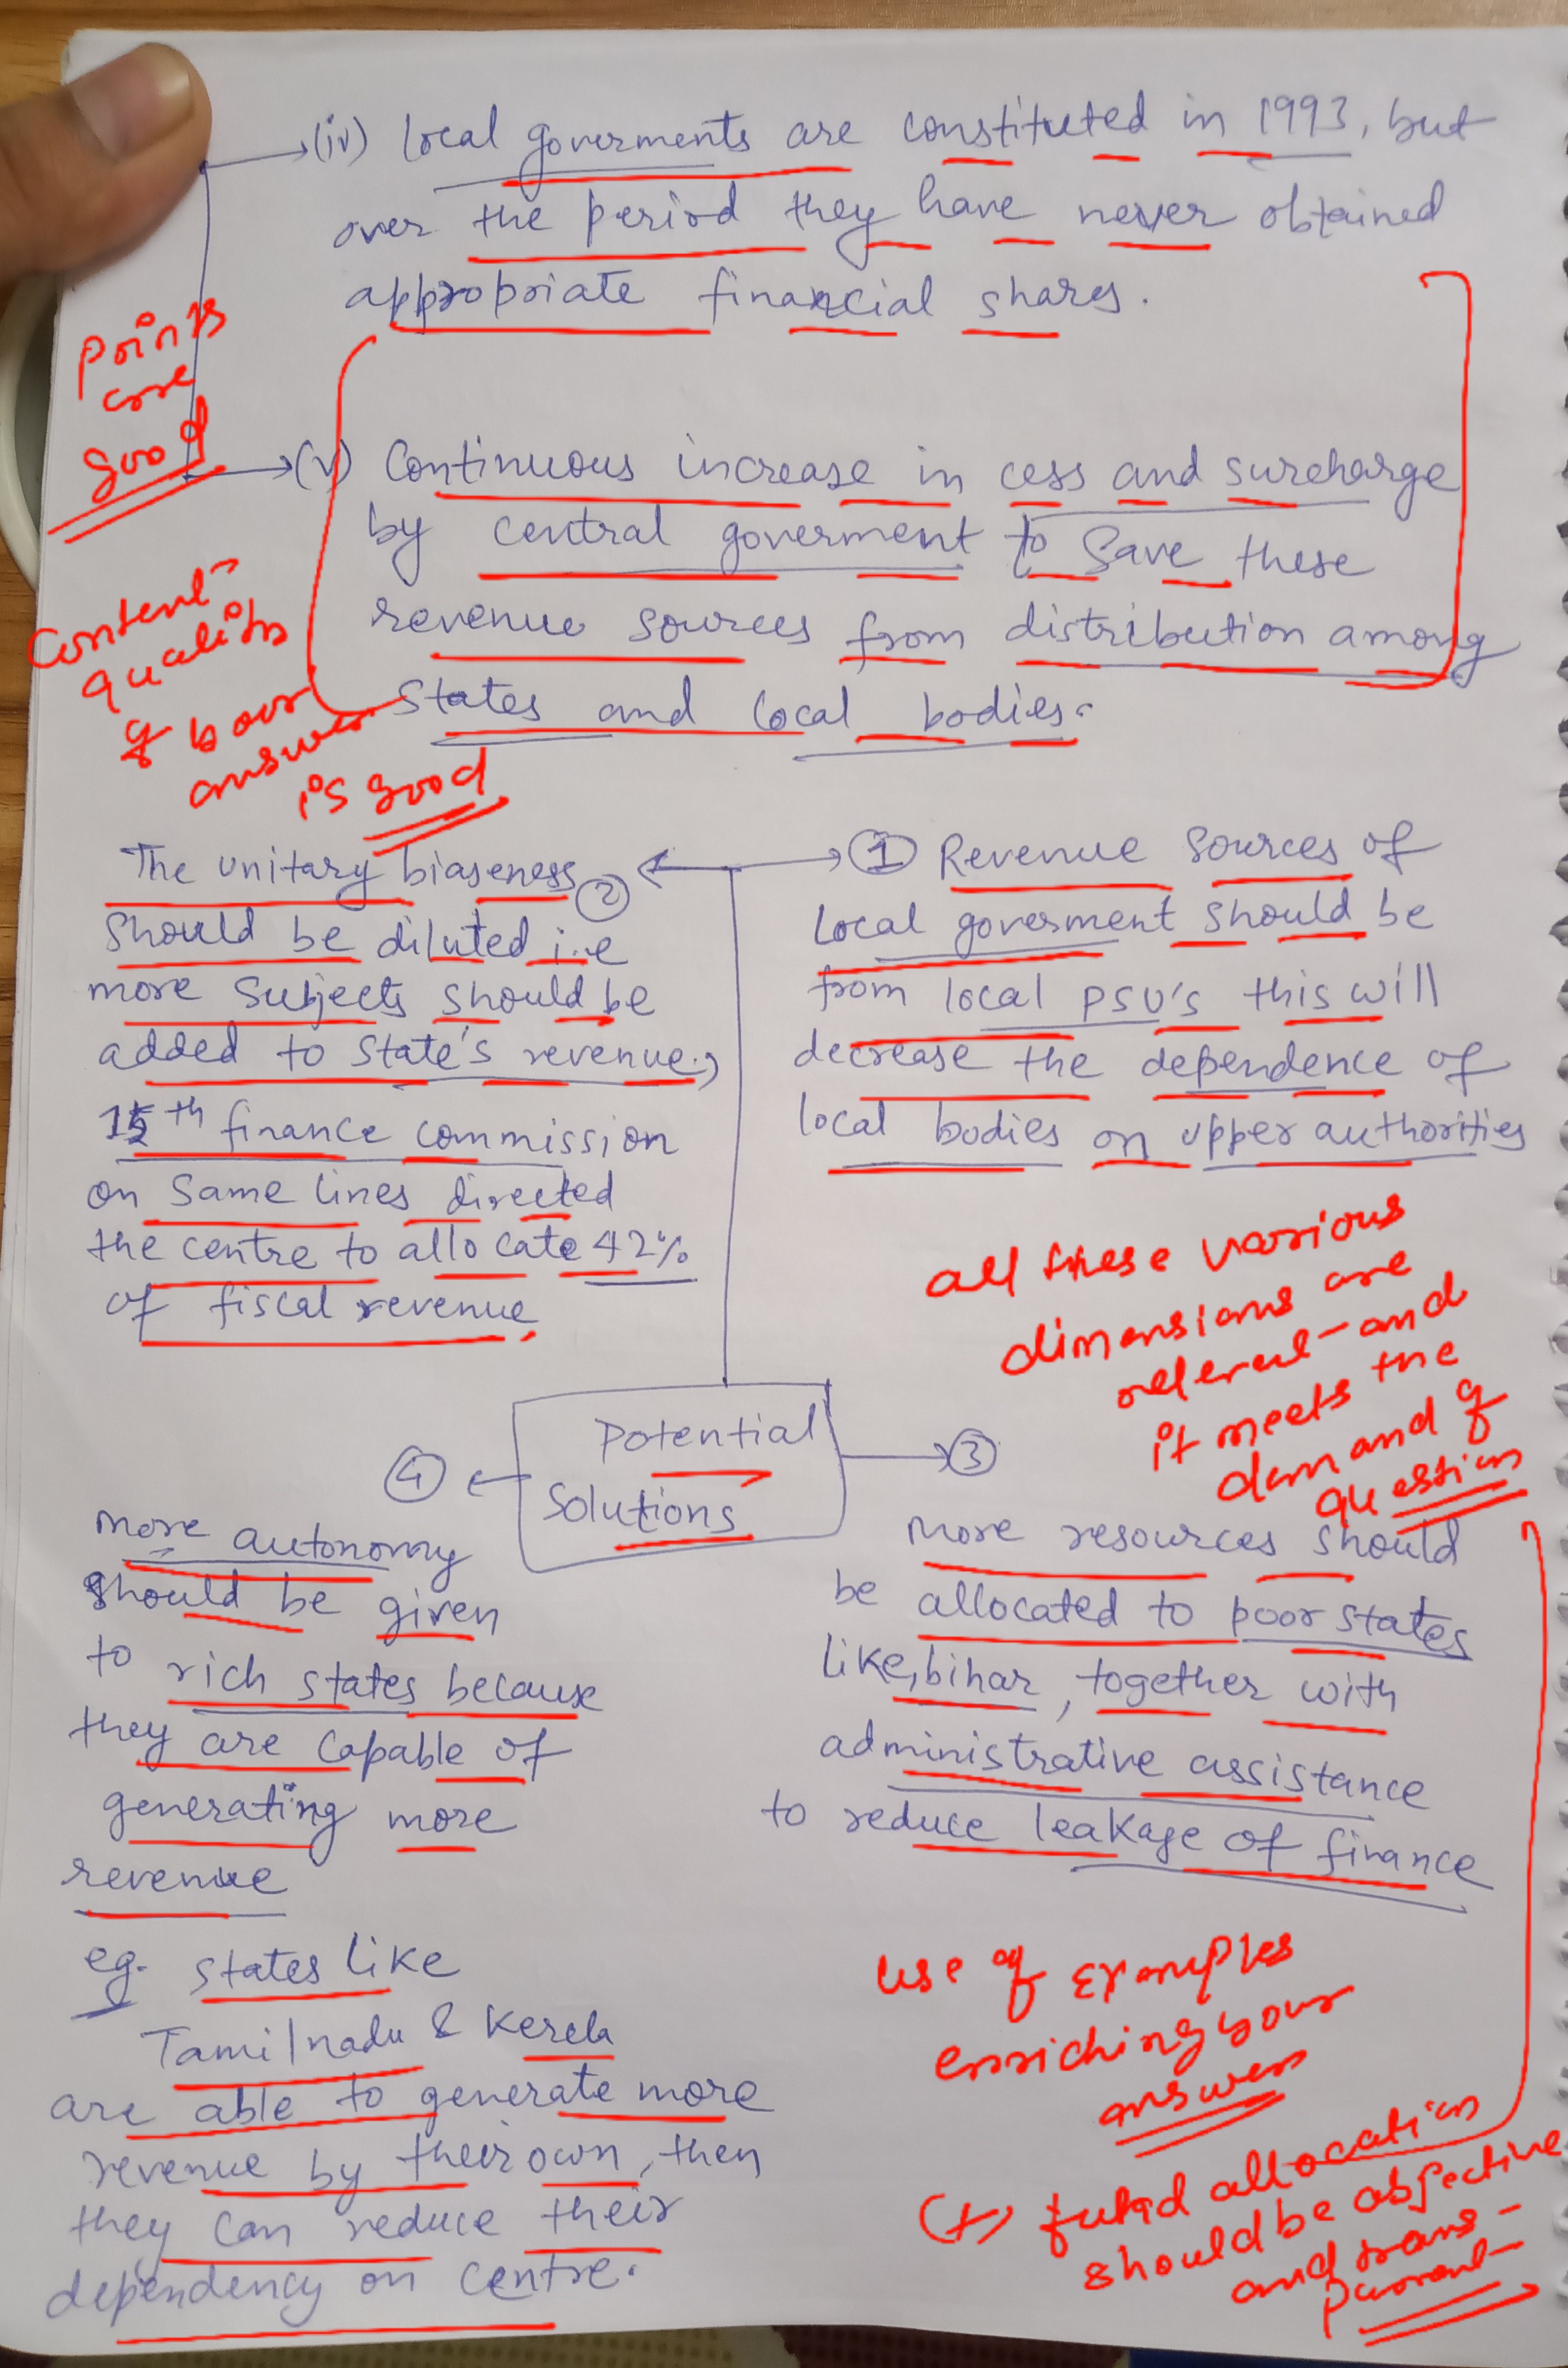 (iv) local goverments are constituted in 1993, but
over the period they have never obtained
appropriate financial shares.
Points
are
good
(v) Continuous increase in cess and surcharge
by central goverment to save these
revenue sources from distribution among
states and local bodies.
Content
quality
of your
answer
is good
The unitary biaseness ②
should be diluted i.e
more subjects should be
added to state's revenue,
15th finance commission
on same lines directed
the centre to allocate 42%
of fiscal revenue.
① Revenue sources of
local goverment should be
from local PSU's this will
decrease the dependence of
local bodies on upper authorities
all these various
dimensions are
relevent and
it meets the
demand of
question
Potential
Solutions
④
more autonomy
should be given
to rich states because
they are capable of
generating more
revenue
eg. states like
Tamilnadu & Kerela
are able to generate more
revenue by their own, then
they can reduce their
dependency on centre.
③
more resources should
be allocated to poor states
like, bihar, together with
administrative assistance
to reduce leakage of finance
use of Examples
enriching your
answer
(+) fund allocation
should be objective
and trans-
parent